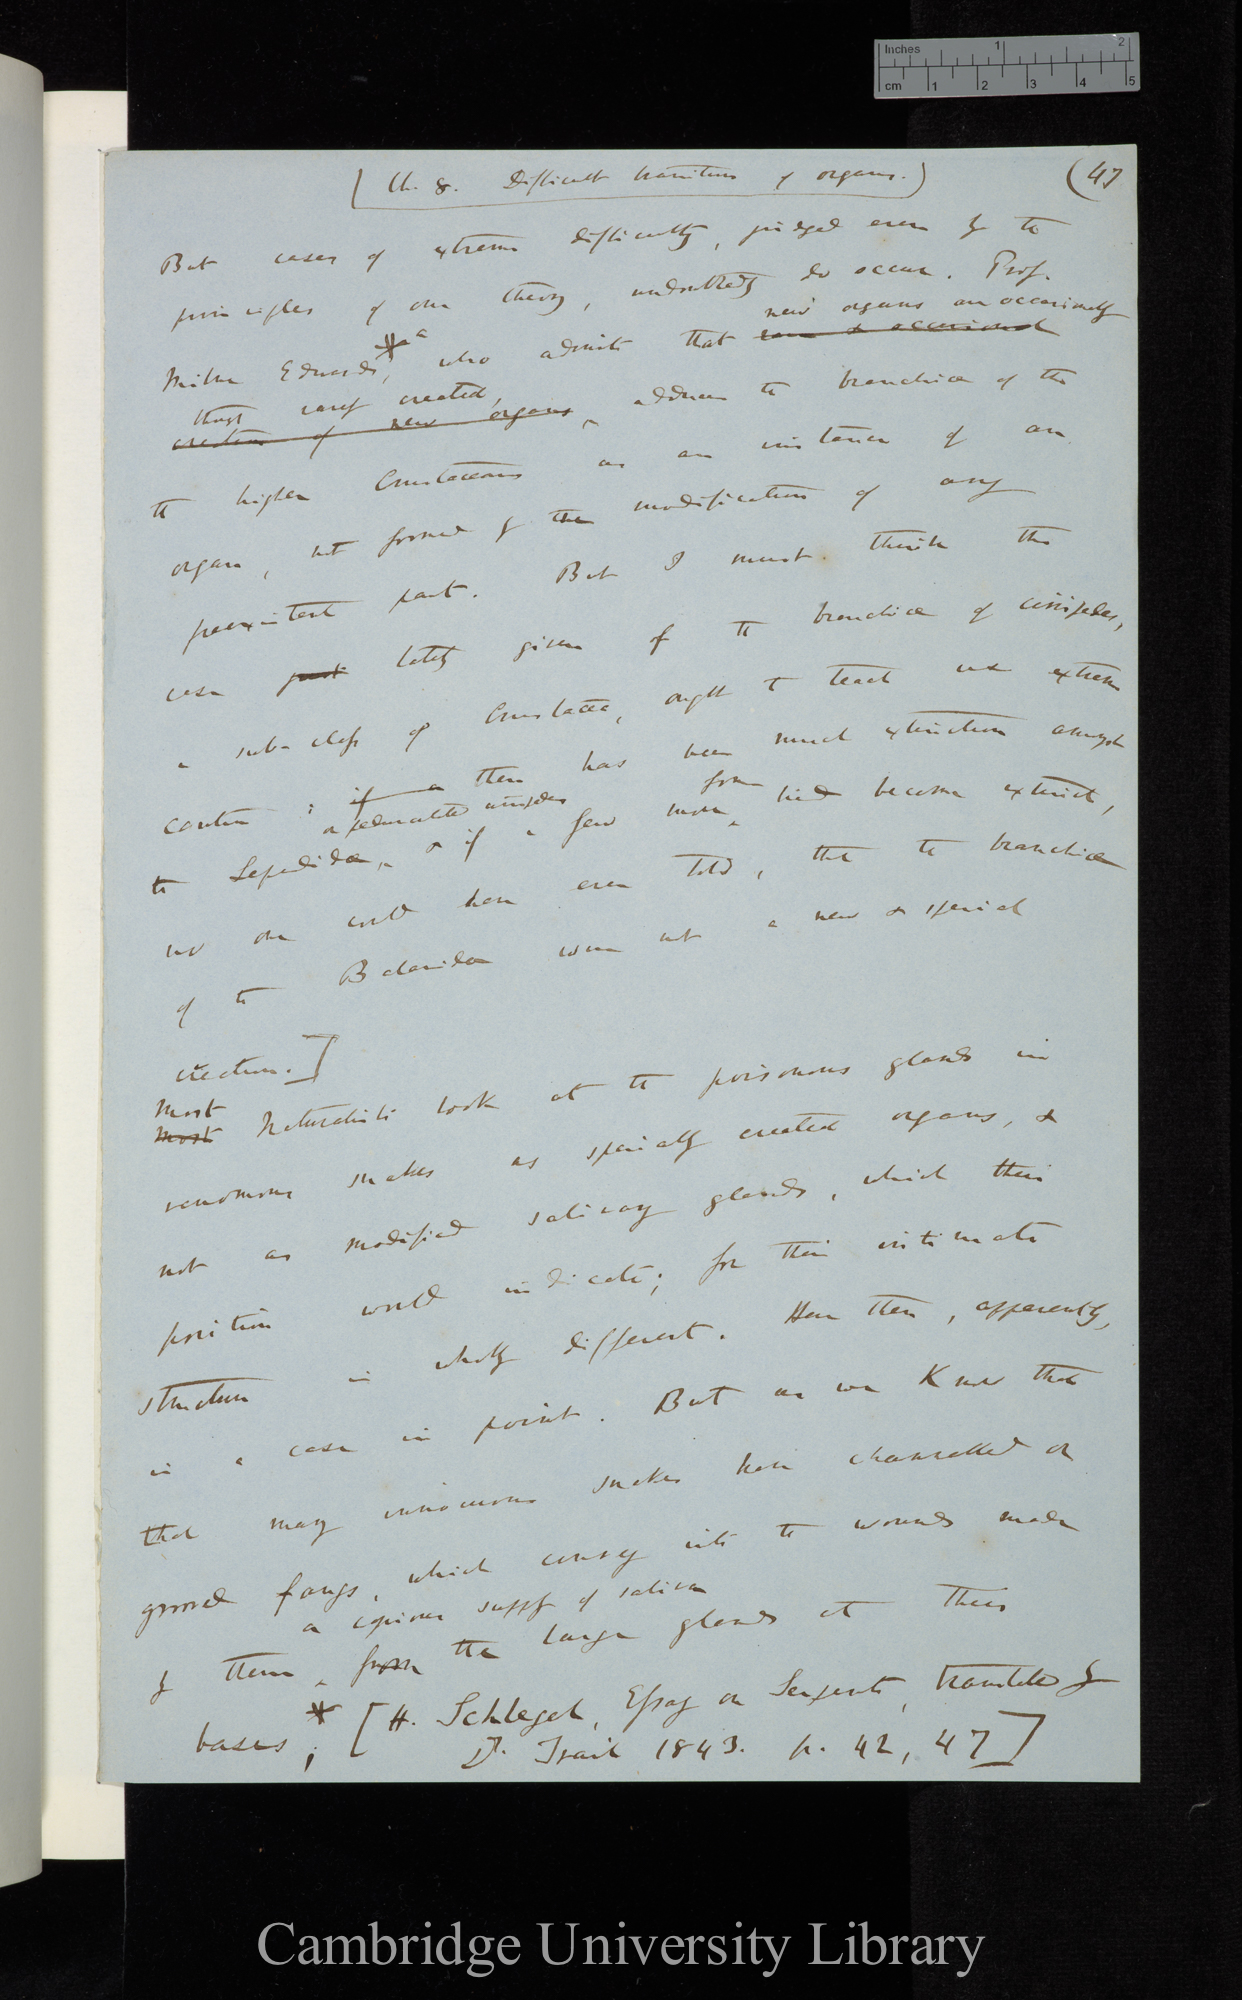 Inches 1 2
cm 1 2 3 4 5
(Ch. 8. Difficult transitions of organs.) (47
But cases of extreme difficulty, judged even by the
principles of our theory, undoubtedly do occur. Prof.
new organs are occasionally
Milne Edwards,* a who admits that rare & occasional
though rarely created,
creation of new organs adduces the branchiæ of the
the higher Crustaceans as an instance of an
organ, not formed by the modification of any
preexistent part. But I must think the
case just lately given of the branchiæ of cirripedes,
a sub-class of Crustacea, ought to teach us extreme
caution; if a there has been much extinction amongst
or pedunculated cirripedes
forms
the Lepadidæ, & if a few more had become extinct,
no one could have ever told, that the branchiæ
of the Balanidæ were not a new & special
creation.]
Most
Most Naturalists look at the poisonous glands in
venomous snakes as specially created organs, &
not as modified salivary glands, which their
position would indicate; for their intimate
structure is wholly different. Here then, apparently,
is a case in point. But as we know that
that many innocuous snakes have channelled or
grooved fangs, which convey into the wounds made
a copious supply of saliva
by them from the large glands at their
bases;* [H. Schlegel, Essay on Serpents, translated by
Dr. Traill 1843. p. 42, 47]
Cambridge University Library